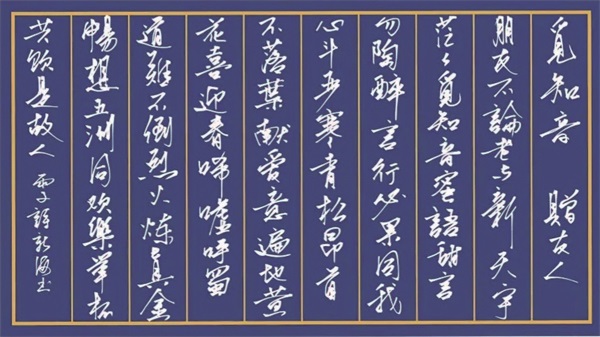 覓知音 贈友人
朋友不論老与新天宇
茫々覓知音蜜語甜言
勿陶醉言行必果同我
心斗严寒青松昂首
不落葉献爱意遍地黄
花喜迎春唏嘘呼蜀
道難不倒烈火炼真金
暢想五洲同欢樂举杯
共是故人